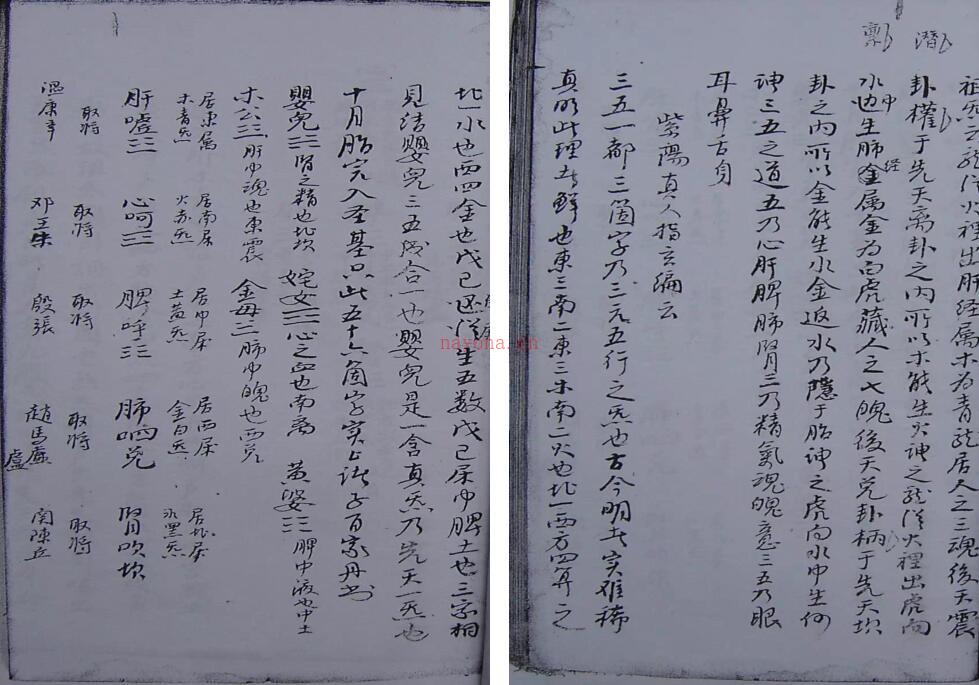 祖炁云龍從火裡出肝经屬木为青龍居人之三魂後天震
卦權于先天离卦之内所以木能生火神之龍從火裡出虎向
水中也生肺经屬金为白虎藏人之七魄後天兑卦柄于先天坎
卦之内所以金能生水金返水乃隱于胎神之虎向水中生何
神三五之道五乃心肝脾肺腎三乃精氣魂魄意三五乃眼
耳鼻舌身
紫陽真人指玄編云
三五一都三箇字乃三元五行之炁也古今明者实难稀
真明此理者鲜也東三南二東三木南二火也北一西方四算之
潛
北一水也西四金也戊己還從生五数戊己屬中脾土也三家相
見结嬰兒三五成合一也嬰兒是一含真炁乃先天一炁也
十月胎完入圣基只此五十六箇字实上諸子百家丹書
嬰兒三腎之精也北坎 姹女三心之血也南离 黄婆三脾中液也中土
木公三肝中魂也東震 金母三肺中魄也西兑
居東屬木青炁 居南屬火赤炁 居中屬土黄炁 居西屬金白炁 居北屬水黑炁
肝嘘 心呵 脾呼 肺呬兑 腎吹坎
取将 取将 取将 取将 取将
温康辛 邓王朱 殷張 趙馬 盧 関陳
nayona.cn